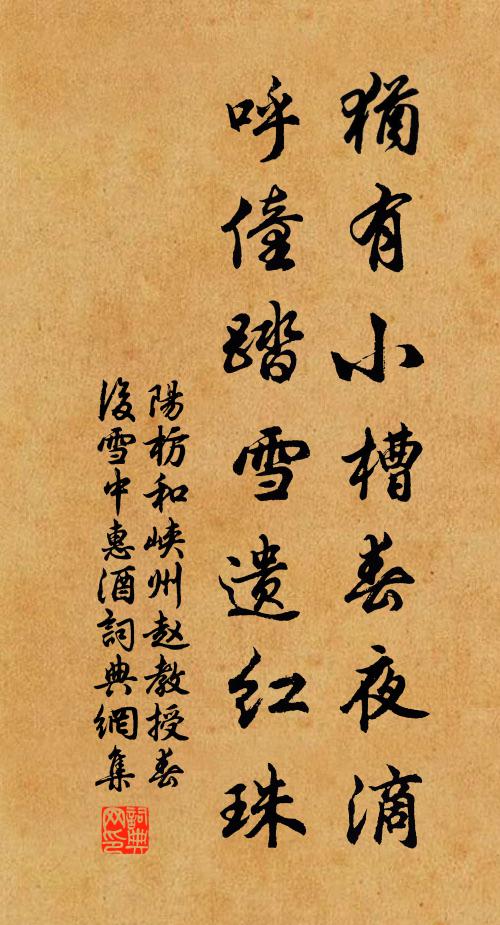 猶有小槽春夜滴
呼僮踏雪遗红珠
陽枋和峡州赵教授春
後雪中惠酒詞典網集
詞典
网印